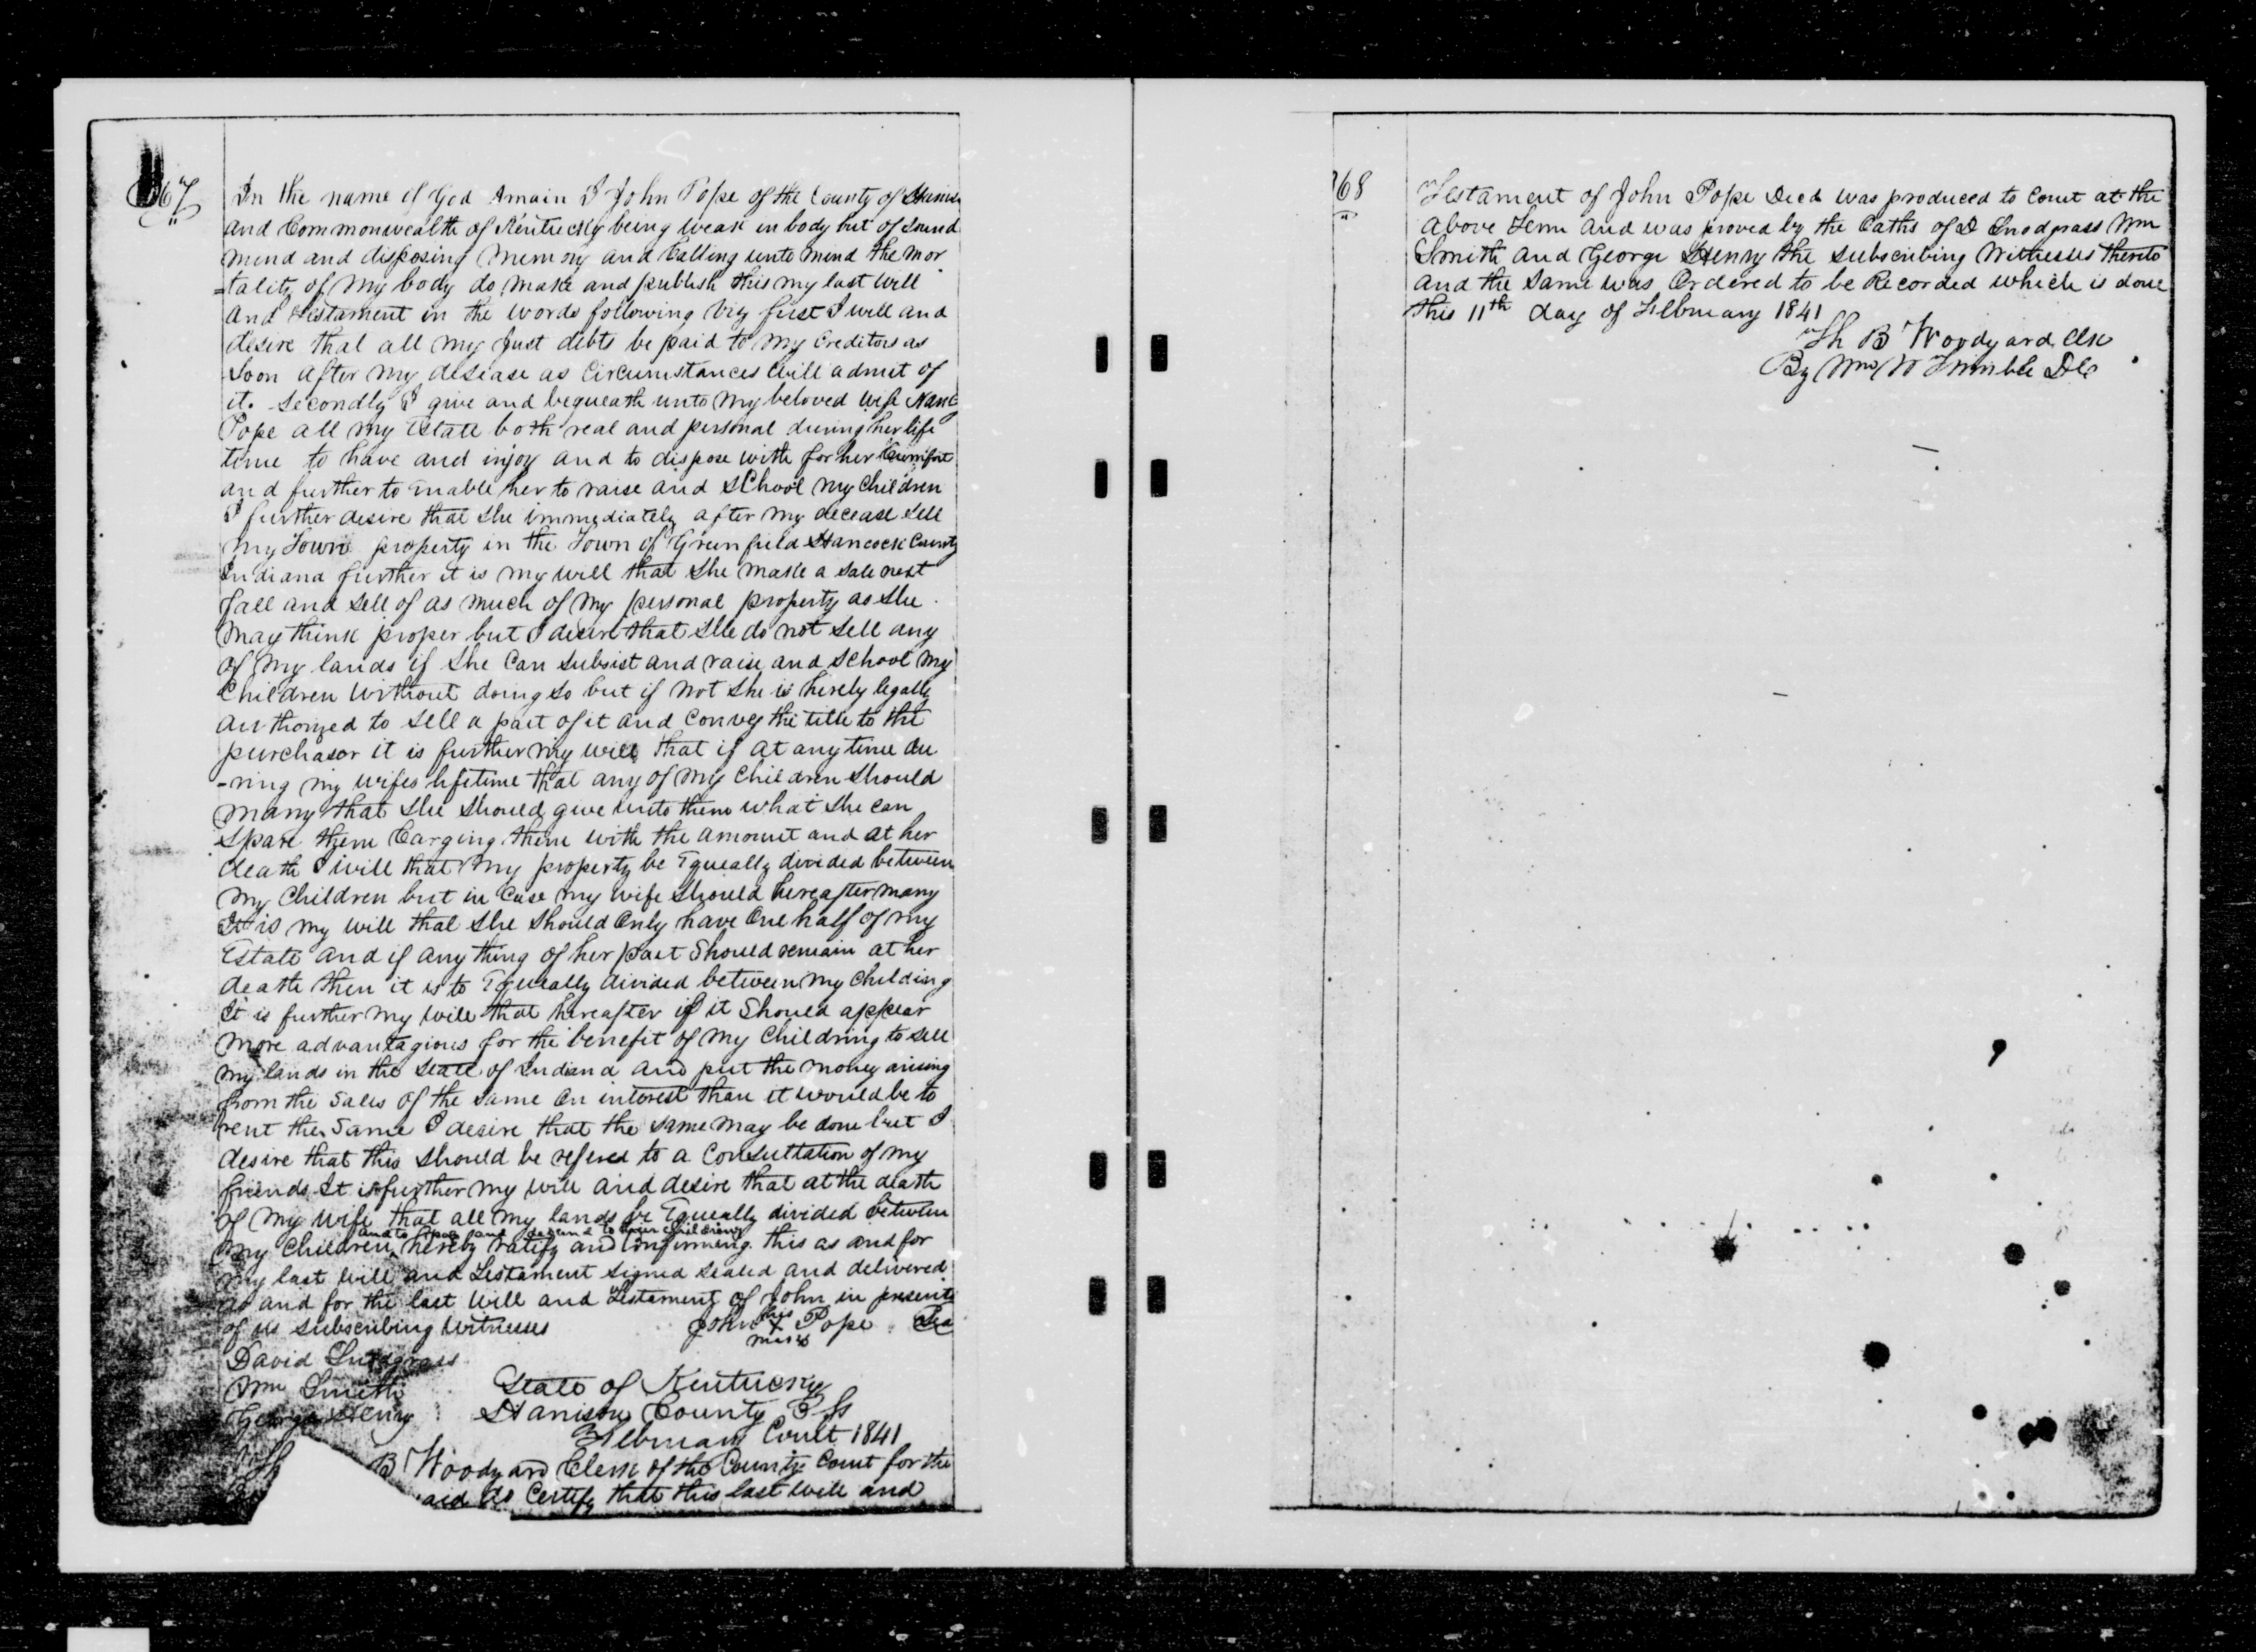 67
In the name of God Amain I John Pope of the County of
and Commonwealth of Kentucky being weak in body but of sound
mind and disposing memory and Calling unto mind the mor
=tality of my body do make and publish this my last will
and testament in the words following viz first I will and
desire that all my just debts be paid to my creditors as
soon after my disease as Circumstances will admit of
it. Secondly I give and bequeath unto my beloved wife
Pope all my Estate both real and personal during her life
time to have and injoy and to dispose with for her Cumfort
and further to Enable her to raise and School my Children
I further desire that she immediately after my decease sell
my Town property in the Town of Greenfield Hancock County
Indiana further it is my will that she make a sale next
fall and sell of as much of my personal property as she
may think proper but I desire that she do not sell any
of my lands if she Can subsist and raise and School my
Children without doing so but if not she is hereby legally
authorized to sell a part of it and Convey the title to the
purchasor it is further my will that if at any time du
-ring my wifes lifetime that any of my Children should
marry that she should give unto them what she can
spare them Carging them with the amount and at her
death I will that my property be Equeally divided between
my Children but in Case my wife should hereafter marry
It is my will that she should Only have One half of my
Estate and if any thing of her part should remain at her
death then it is to Equeally divided between my Childring
It is further my will that hereafter if it should appear
more advantagious for the benefit of my Childring to sell
my lands in the State of Indiana and put the money arising
from the sales of the same on interest than it would be to
rent the same I desire that the same may be done but I
desire that this should be refered to a Consultation of my
friends It is further my will and desire that at the death
of my wife that all my lands be Equeally divided between
and to and decend to their childring
my Children hereby ratify and confirming this as and for
my last will and Testament signed sealed and delivered
as and for the last will and Testament of John in presents
of us subscribing witnesses
his
John X Pope
mark
David Snodgrass
Wm Smith
George Henry
State of Kentucky
Harrison County Ss
February Court 1841
B Woodyard Clerk of the County Court for the
aid do Certify that this last will and
168
Testament of John Pope Decd was produced to Court at the
above Term and was proved by the Oaths of D Snodgrass Wm
Smith and George Henry the subscribing witnesses thereto
and the same was Ordered to be Recorded which is done
this 11th day of February 1841
Th B Woodyard Clk
By Wm W Trimble DC